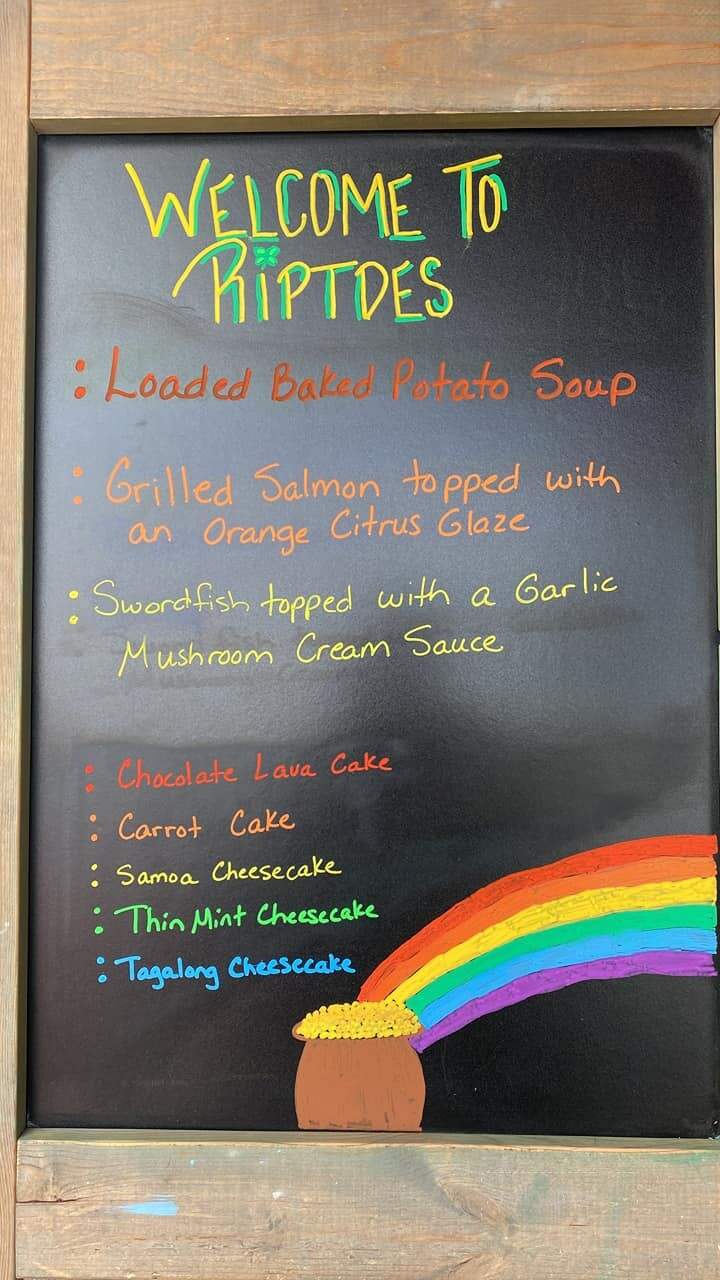 WELCOME TO
RiPTDES
: Loaded Baked Potato Soup
: Grilled Salmon topped with
an Orange Citrus Glaze
: Swordfish topped with a Garlic
Mushroom Cream Sauce
: Chocolate Lava Cake
: Carrot Cake
: Samoa Cheesecake
: Thin Mint Cheesecake
: Tagalong Cheesecake